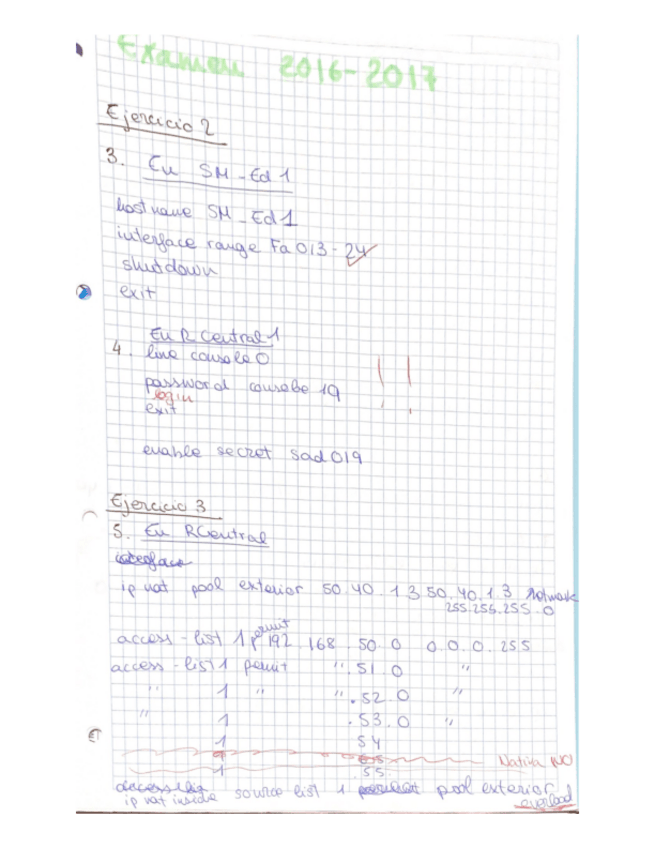 Examen 2016-2017
Ejercicio 2
3. En SM-Ed 1
hostname SM-Ed1
interface range Fa 013-24
shutdown
exit
En R Central 1
4. line console 0
password console 19
login
exit
enable secret sad 019
Ejercicio 3
5. En RCentral
interface
ip nat pool exterior 50.40.1.3 50.40.1.3 netmask
255.255.255.0
access-list 1 permit 192.168.50.0 0.0.0.255
access-list 1 permit ".51.0 "
" 1 " ".52.0 "
" 1 .53.0 "
1 54
Nativa NO
1 55
ip nat inside source list 1 pool exterior
overload